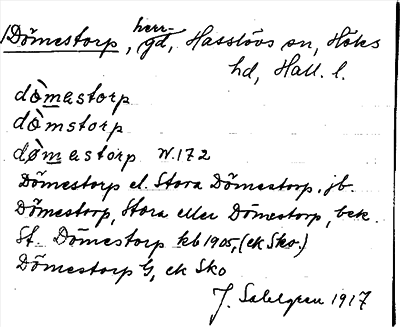 Dömestorp, herr-gd, Hasslövs sn, Höks
hd, Hall. l.
dòmastorp
dòmstorp
dømastorp W.172
Dömestorp el. Stora Dömestorp. jb.
Dömestorp, Stora eller Dömestorp, bek.
St. Dömestorp kb 1905, (ek Sko.)
Dömestorp G, ek Sko
J. Sahlgren 1917